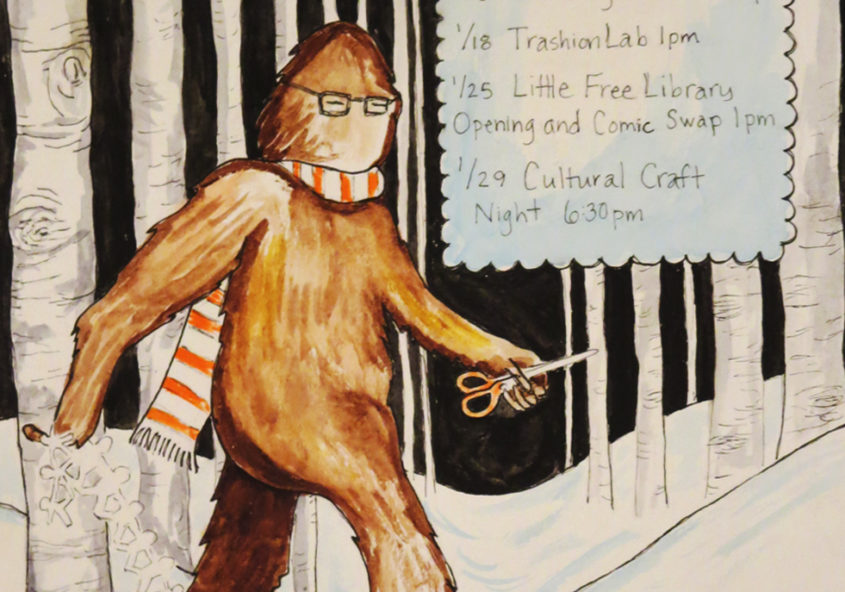 1/18 Trashion Lab 1pm
1/25 Little Free Library
Opening and Comic Swap 1pm
1/29 Cultural Craft
Night 6:30pm